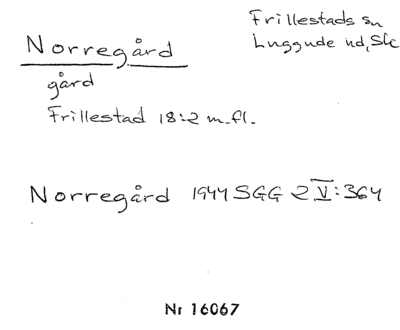 Norregård
Frillestads sn
Luggude hd, Sk
gård
Frillestad 18:2 m.fl.
Norregård 1944 SGG 2 V:364
Nr 16067